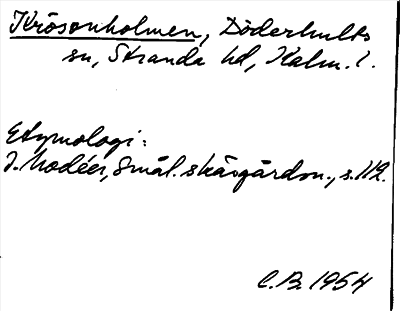 Krösonholmen, Döderhults
sn, Stranda hd, Kalm. l.
Etymologi:
I. Modéer, Smål. skärgårdsn., s. 112.
C.B. 1954